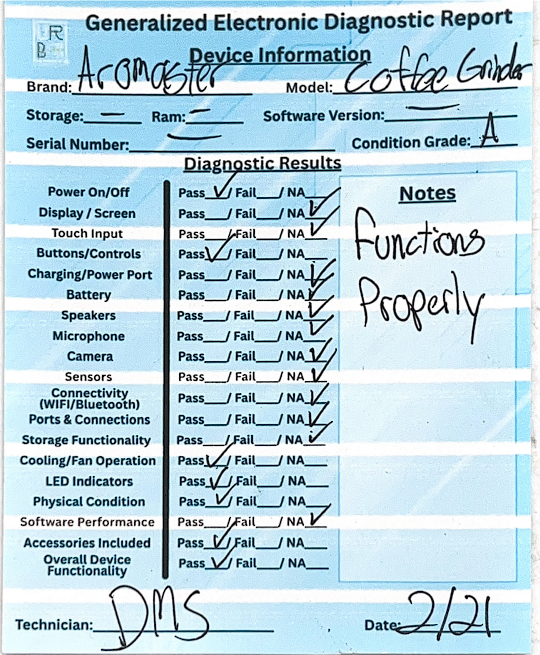 FR
B
Generalized Electronic Diagnostic Report
Device Information
Brand: Aromaster Model: Coffee Grinder
Storage: — Ram: — Software Version: —
Serial Number: — Condition Grade: A
Diagnostic Results
Power On/Off Pass ✓ / Fail___/ NA___
Display / Screen Pass___/ Fail___/ NA ✓
Touch Input Pass___/ Fail___/ NA ✓
Buttons/Controls Pass ✓ / Fail___/ NA___
Charging/Power Port Pass___/ Fail___/ NA ✓
Battery Pass___/ Fail___/ NA ✓
Speakers Pass___/ Fail___/ NA ✓
Microphone Pass___/ Fail___/ NA ✓
Camera Pass___/ Fail___/ NA ✓
Sensors Pass___/ Fail___/ NA ✓
Connectivity
(WIFI/Bluetooth) Pass___/ Fail___/ NA ✓
Ports & Connections Pass___/ Fail___/ NA ✓
Storage Functionality Pass___/ Fail___/ NA ✓
Cooling/Fan Operation Pass ✓ / Fail___/ NA___
LED Indicators Pass ✓ / Fail___/ NA___
Physical Condition Pass ✓ / Fail___/ NA___
Software Performance Pass___/ Fail___/ NA ✓
Accessories Included Pass ✓ / Fail___/ NA___
Overall Device
Functionality Pass ✓ / Fail___/ NA___
Notes
Functions
Properly
Technician: DMS Date: 2/21